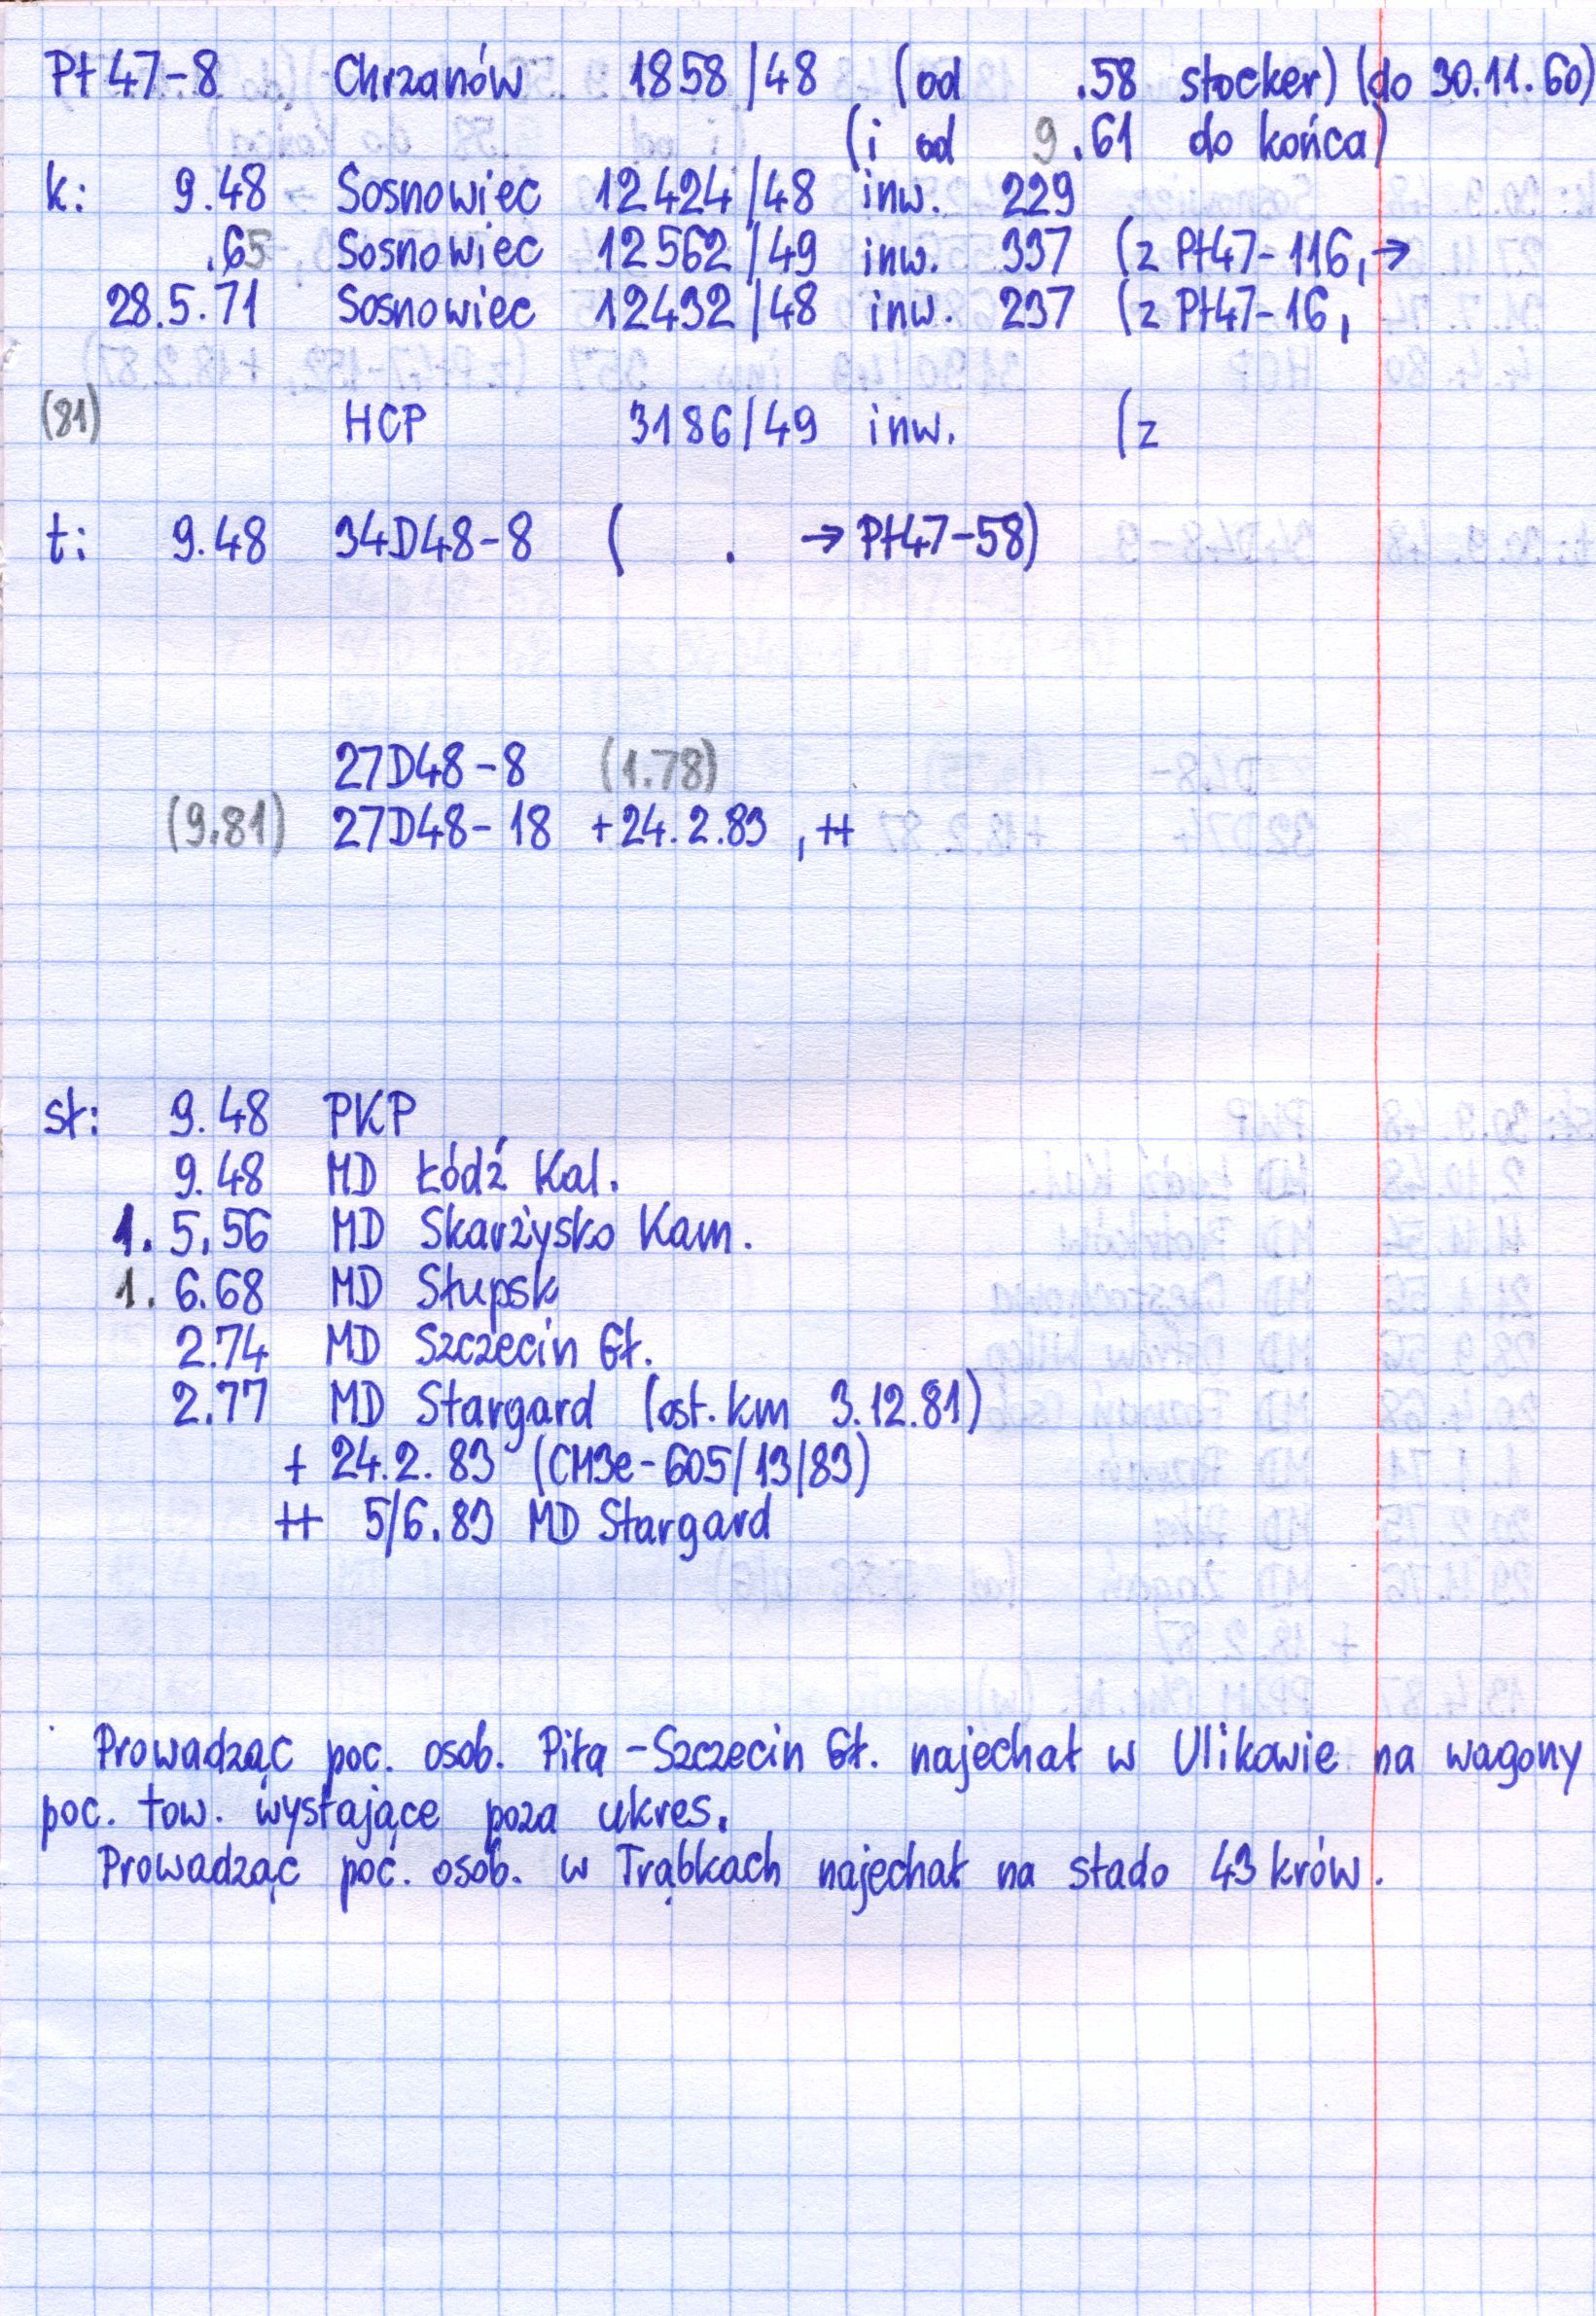 Pt47-8 Chrzanów 1858/48 (od .58 stocker) (do 30.11.60)
(i od 9.61 do końca)
k: 9.48 Sosnowiec 12424/48 inw. 229
.65 Sosnowiec 12562/49 inw. 337 (z Pt47-116, →
28.5.71 Sosnowiec 12432/48 inw. 237 (z Pt47-16,
(81) HCP 3186/49 inw. (z
t: 9.48 34D48-8 ( . → Pt47-58)
27D48-8 (1.78)
(9.81) 27D48-18 +24.2.83 , ++
st: 9.48 PKP
9.48 MD Łódź Kal.
1. 5.56 MD Skarżysko Kam.
1. 6.68 MD Słupsk
2.74 MD Szczecin Gł.
2.77 MD Stargard (ost. km 3.12.81)
+ 24.2.83 (CM3e-605/13/83)
++ 5/6.83 MD Stargard
Prowadząc poc. osob. Piła-Szczecin Gł. najechał w Ulikowie na wagony
poc. tow. wystające poza ukres.
Prowadząc poc. osob. w Trąbkach najechał na stado 43 krów.